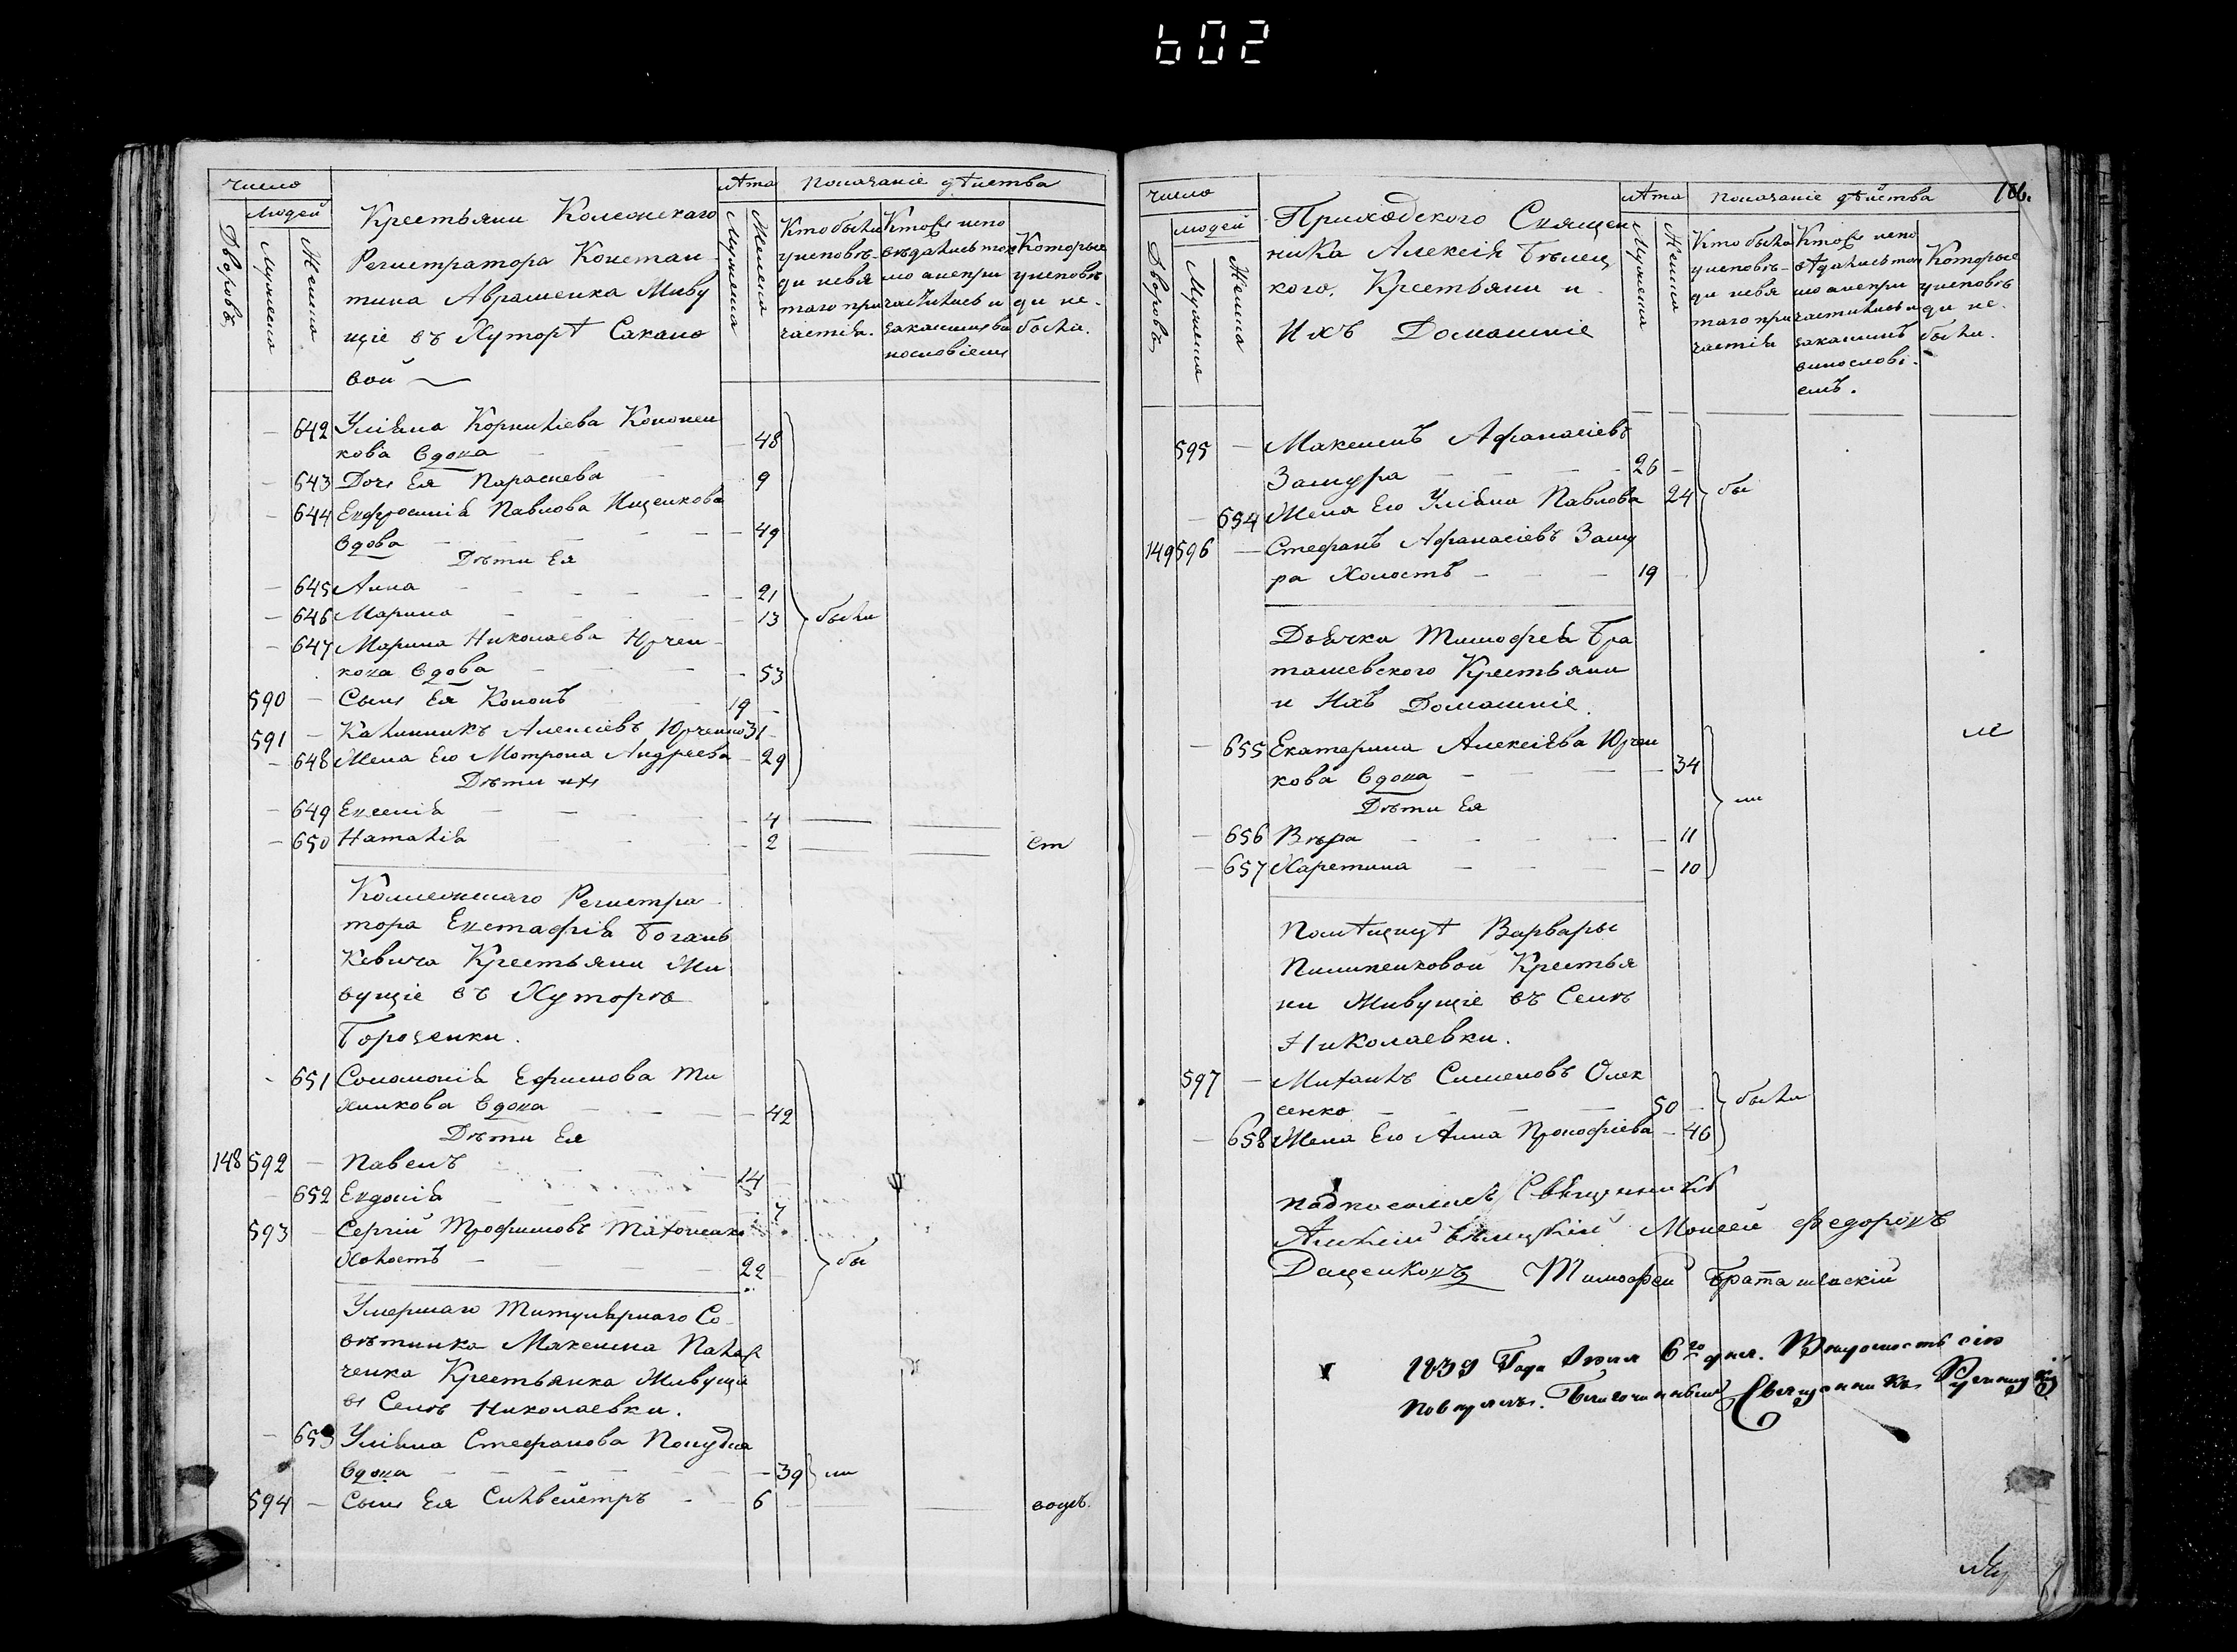 602
число
людей
Дворовъ
Мужеска
Женска
Крестьяни Колежскаго
Регистратора Констан
тина Аврашенка Живу
щіе въ Хуторѣ Сахано
вой
лѣта
Мужеска
Женска
Показаніе дѣйства
Кто были
у исповѣ-
ди и свя
таго при
частія.
Которые
у исповѣ
ди не-
были.
642 Уліяна Корниліева Кононен
кова вдова 48
643 Дочь Ея Параскева 9
644 Евфросинія Павлова Ищенкова
вдова 49
Дѣти Ея
645 Анна 21
646 Марина 13 были
647 Марина Николаева Юрчен
кова вдова 53
590 Сынъ Ея Кононъ 19
591 Калинникъ Алексіевъ Юрченко 31
648 Жена Его Мотрона Андреева 29
Дѣти ихъ
649 Ексенія 4
650 Наталія 2 ст
Колежскаго Регистра
тора Евстафія Богаць
кевича Крестьяни Жи
вущіе въ Хуторѣ
651 Соломонія Ефимова Ти
хенкова вдова 42
Дѣти Ея
148 592 Павелъ 14
652 Евдокія 7
593 Сергій Трофимовъ
Холостъ 22 бы
Умершаго Титулярнаго Со
вѣтника Максима Пахар
ченка Крестьянка Живуща
въ Селѣ Николаевки.
653 Уліяна Стефанова
вдова 39 ли
594 Сынъ Ея Силвестръ 6
106.
число
людей
Дворовъ
Мужеска
Женска
Приходского Священ
ника Алексія Бѣлец
кого. Крестьяни и
Ихъ Домашніе
лѣта
Мужеска
Женска
Показаніе дѣйства
Кто были
у исповѣ-
ди и свя
таго при
частія
Которые
у исповѣ
ди не-
были.
595 Максимъ Афанасіевъ
Замура 26
654 Жена Его Уліяна Павлова 24 бы
149 596 Стефанъ Афанасіевъ Заму
ра Холостъ 19
Дьячка Тимофея Бра
ташевского Крестьяни
и Ихъ Домашніе.
655 Екатерина Алексіева Юрчен
кова вдова 34
Дѣти Ея
ли
656 Вѣра 11
657 Харетина 10
Помѣщицѣ Варвары
Пилипенковой Крестья
ни Живущіе въ Селѣ
Николаевки.
597 Михаилъ Сименовъ Олек
сенко 50 были
658 Жена Его Анна Прокофіева 46
Священникъ
Алексій Бѣлецкій Моисей Федоровъ
Даценковъ Тимофей Браташевскій
1839 Года Июня 6го дня. Вѣдомость сію
повѣрялъ. Благочинный Священникъ